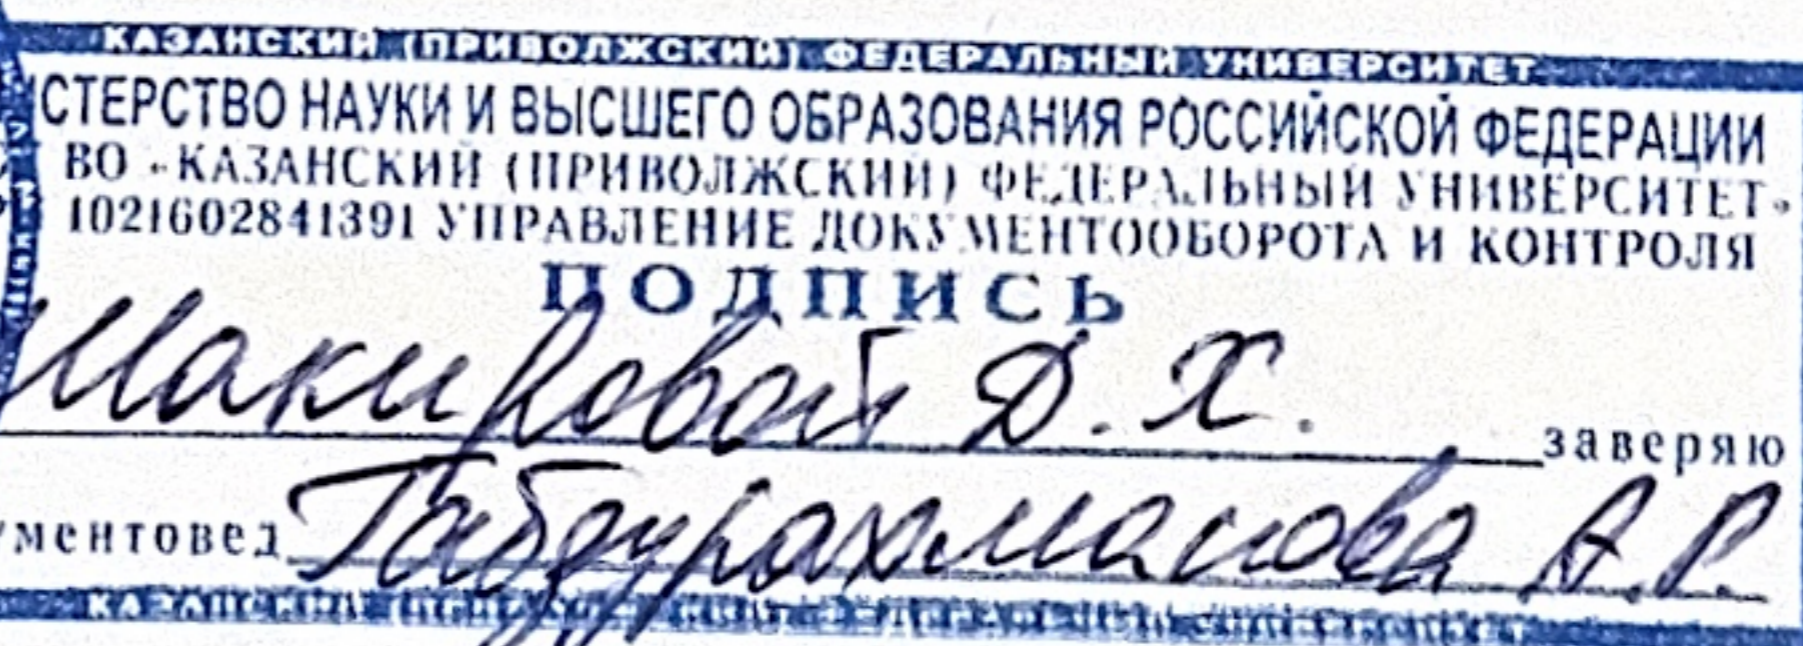 КАЗАНСКИЙ (ПРИВОЛЖСКИЙ) ФЕДЕРАЛЬНЫЙ УНИВЕРСИТЕТ
ИСТЕРСТВО НАУКИ И ВЫСШЕГО ОБРАЗОВАНИЯ РОССИЙСКОЙ ФЕДЕРАЦИИ
ВО «КАЗАНСКИЙ (ПРИВОЛЖСКИЙ) ФЕДЕРАЛЬНЫЙ УНИВЕРСИТЕТ»
1021602841391 УПРАВЛЕНИЕ ДОКУМЕНТООБОРОТА И КОНТРОЛЯ
ПОДПИСЬ
Шакировой Д. Х. заверяю
ументовед Габдурахманова А.Р.
КАЗАНСКИЙ